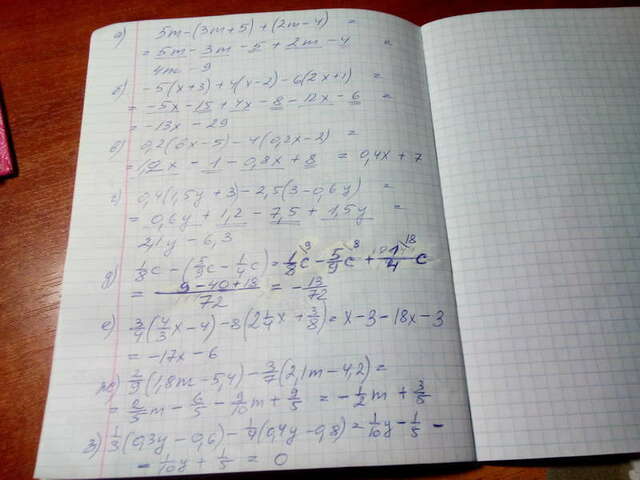 а) 5m-(3m+5)+(2m-4) =
= 5m-3m-5+2m-4 =
4m-9
б) -5(x+3)+4(x-2)-6(2x+1) =
= -5x-15+4x-8-12x-6 =
= -13x-29
в) 0,2(6x-5)-4(0,2x-2) =
= 1,2x-1-0,8x+8 = 0,4x+7
г) 0,4(1,5y+3)-2,5(3-0,6y) =
= 0,6y+1,2-7,5+1,5y =
2,1y-6,3
д) 1/8c-(5/9c-1/4c)=1/8\9c-5/9\8c+1/4\18c
= (9-40+18)/72 = -13/72
е) 3/4(4/3x-4)-8(2 1/4x+3/8)=x-3-18x-3
= -17x-6
ж) 2/9(1,8m-5,4)-3/7(2,1m-4,2)=
= 2/5m-6/5-9/10m+9/5 = -1/2m+3/5
з) 1/3(0,3y-0,6)-1/4(0,4y-0,8)=1/10y-1/5-
-1/10y+1/5 = 0